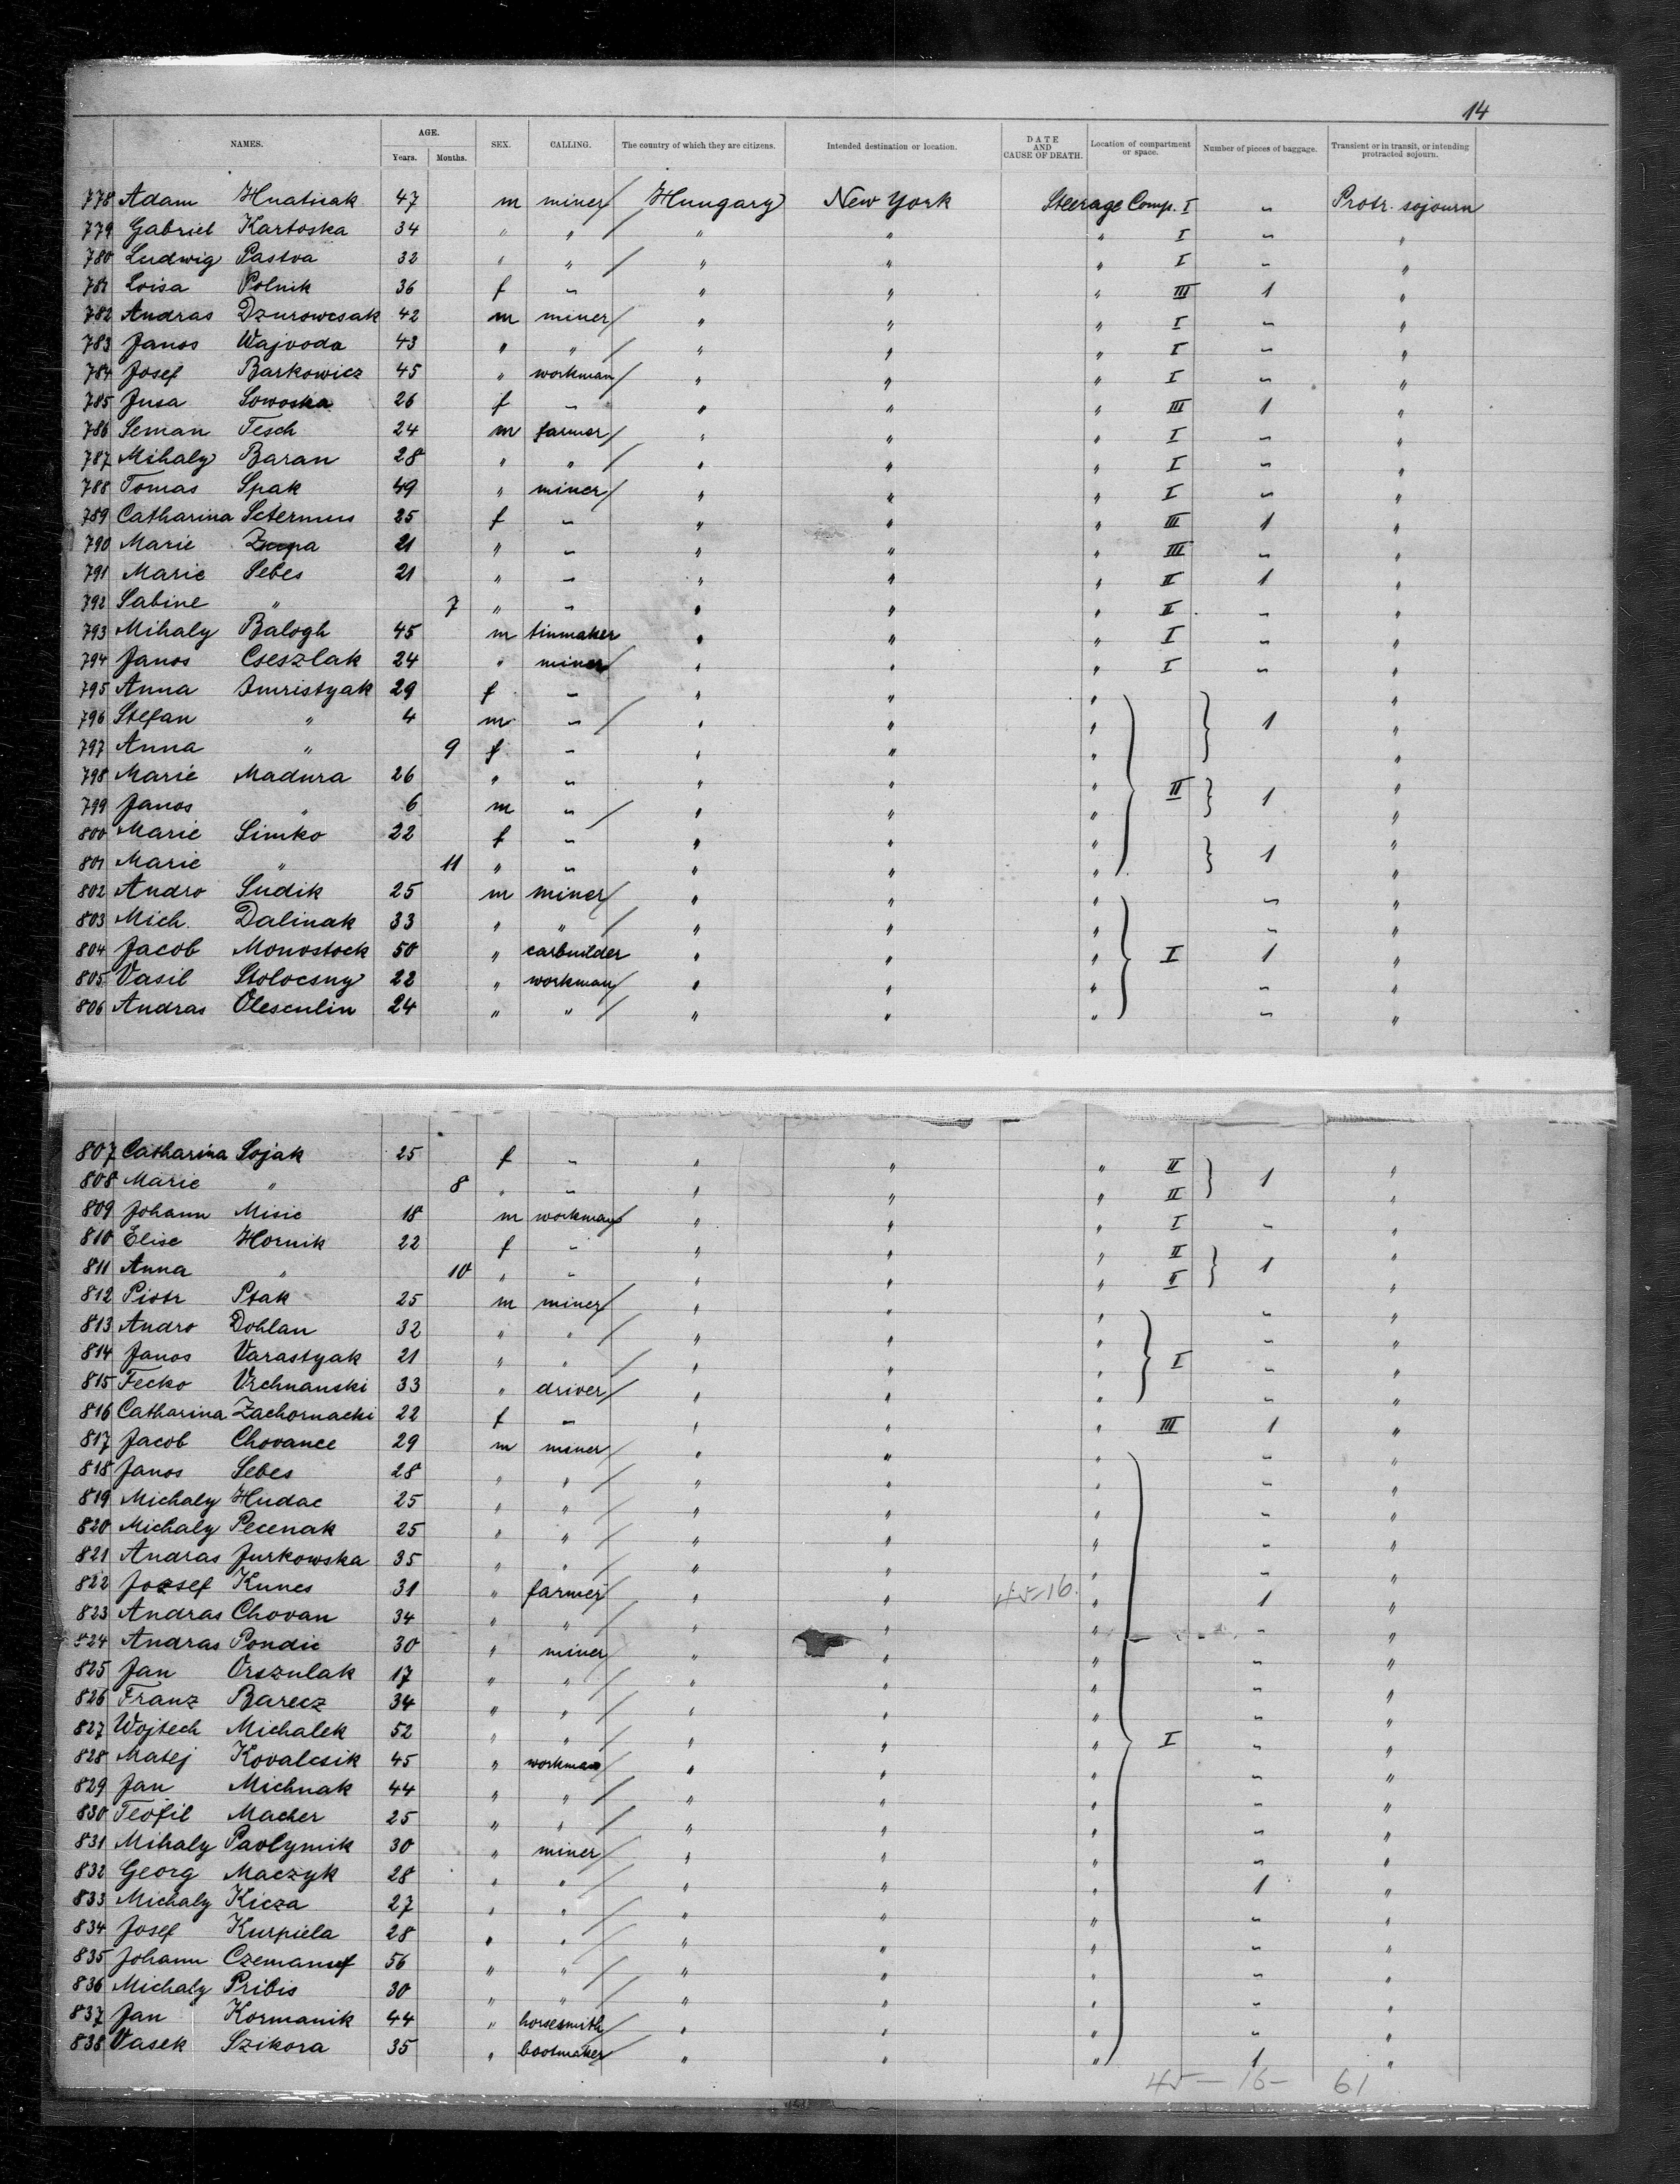 14
NAMES. AGE. Years. Months. SEX. CALLING. The country of which they are citizens. Intended destination or location. DATE AND CAUSE OF DEATH. Location of compartment or space. Number of pieces of baggage. Transient or in transit, or intending protracted sojourn.
778 Adam Hnatiak 47 m miner Hungary New York Steerage Comp. I - Protr. sojourn
779 Gabriel Kartoska 34 " " " " " I - "
780 Ludwig Pastva 32 " " " " " I - "
781 Loisa Polnik 36 f - " " " III 1 "
782 Andras Dzurowcsak 42 m miner " " " I - "
783 Janos Wajvoda 43 " " " " " I - "
784 Josef Barkowicz 45 " workman " " " I - "
785 Jusa Sowoska 26 f - " " " III 1 "
786 Seman Tesch 24 m farmer " " " I - "
787 Mihaly Baran 28 " " " " " I - "
788 Tomas Spak 49 " miner " " " I - "
789 Catharina Scternus 25 f - " " " III 1 "
790 Marie 21 " - " " " III - "
791 Marie Sebes 21 " - " " " II 1 "
792 Sabine " 7 " - " " " II - "
793 Mihaly Balogh 45 m tinmaker " " " I - "
794 Janos Cseszlak 24 " miner " " " I - "
795 Anna Imristyak 29 f - " " " "
796 Stefan " 4 m - " " " 1 "
797 Anna " 9 f - " " " "
798 Marie Madura 26 " - " " " II 1 "
799 Janos " 6 m - " " " "
800 Marie Simko 22 f - " " " 1 "
801 Marie " 11 " - " " " "
802 Andro Sudik 25 m miner " " " - "
803 Mich. Dalinak 33 " " " " " - "
804 Jacob Monostock 50 " carbuilder " " " I 1 "
805 Vasil Stolocsny 22 " workman " " " - "
806 Andras Olesculin 24 " " " " " - "
807 Catharina Sojak 25 f - " " " II 1 "
808 Marie " 8 " - " " " II "
809 Johann Misic 18 m workman " " " I - "
810 Elise Hornik 22 f - " " " II 1 "
811 Anna " 10 " - " " " II "
812 Piotr Ptak 25 m miner " " " - "
813 Andro Dohlan 32 " " " " " - "
814 Janos Varastyak 21 " " " " " I - "
815 Fecko Vrchnanski 33 " driver " " " - "
816 Catharina Zachornacki 22 f - " " " III 1 "
817 Jacob Chovance 29 m miner " " " - "
818 Janos Sebes 28 " " " " " - "
819 Michaly Hudac 25 " " " " " - "
820 Michaly Pecenak 25 " " " " " - "
821 Andras Jurkowska 35 " " " " " - "
822 Jozsef Kunes 31 " farmer " " 45-16. " 1 "
823 Andras Chovan 34 " " " " " - "
824 Andras Pondic 30 " miner " " " - "
825 Jan Orszulak 17 " " " " " - "
826 Franz Barecz 34 " " " " " - "
827 Wojtech Michalek 52 " " " " " I - "
828 Matej Kovalcsik 45 " workman " " " - "
829 Jan Michnak 44 " " " " " - "
830 Teofil Macher 25 " " " " " - "
831 Mihaly Pavlymik 30 " miner " " " - "
832 Georg Maczyk 28 " " " " " 1 "
833 Michaly Kicza 27 " " " " " - "
834 Josef Kurpiela 28 " " " " " - "
835 Johann 56 " " " " " - "
836 Michaly Pribis 30 " " " " " - "
837 Jan Kormanik 44 " horsesmith " " " - "
838 Vasek Szikora 35 " bootmaker " " " 1 "
45-16- 61